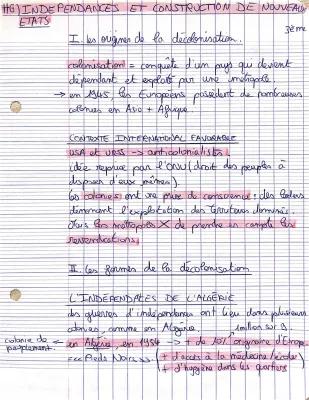 H6) INDEPENDANCES ET CONSTRUCTION DE NOUVEAUX
ETATS
3ème
I. Les origines de la décolonisation.
colonisation = conquête d'un pays qui devient
dépendant et exploité par une métropole.
→ en 1945 les Européens possèdent de nombreuses
colonies en Asie + Afrique.
CONTEXTE INTERNATIONAL FAVORABLE
USA et URSS → anticolonialistes.
idée reprise par l'ONU (droit des peuples à
disposer d'eux mêmes).
Les colonies ont une prise de conscience : des leaders
dénoncent l'exploitation des territoires dominés.
Mais les métropoles X de prendre en compte les
revendications.
II. Les formes de la décolonisation
L'INDEPENDALES DE L'ALGÉRIE
des guerres d'indépendance ont lieu dans plusieurs
colonies, comme en Algérie.
1 million sur 9.
colonie de
peuplement.
← en Algérie, en 1954 → + de 10% originaire d'Europe
<<< Pieds Noirs >>.
+ d'accès à la médecine/école
+ d'hygiène dans les quartiers